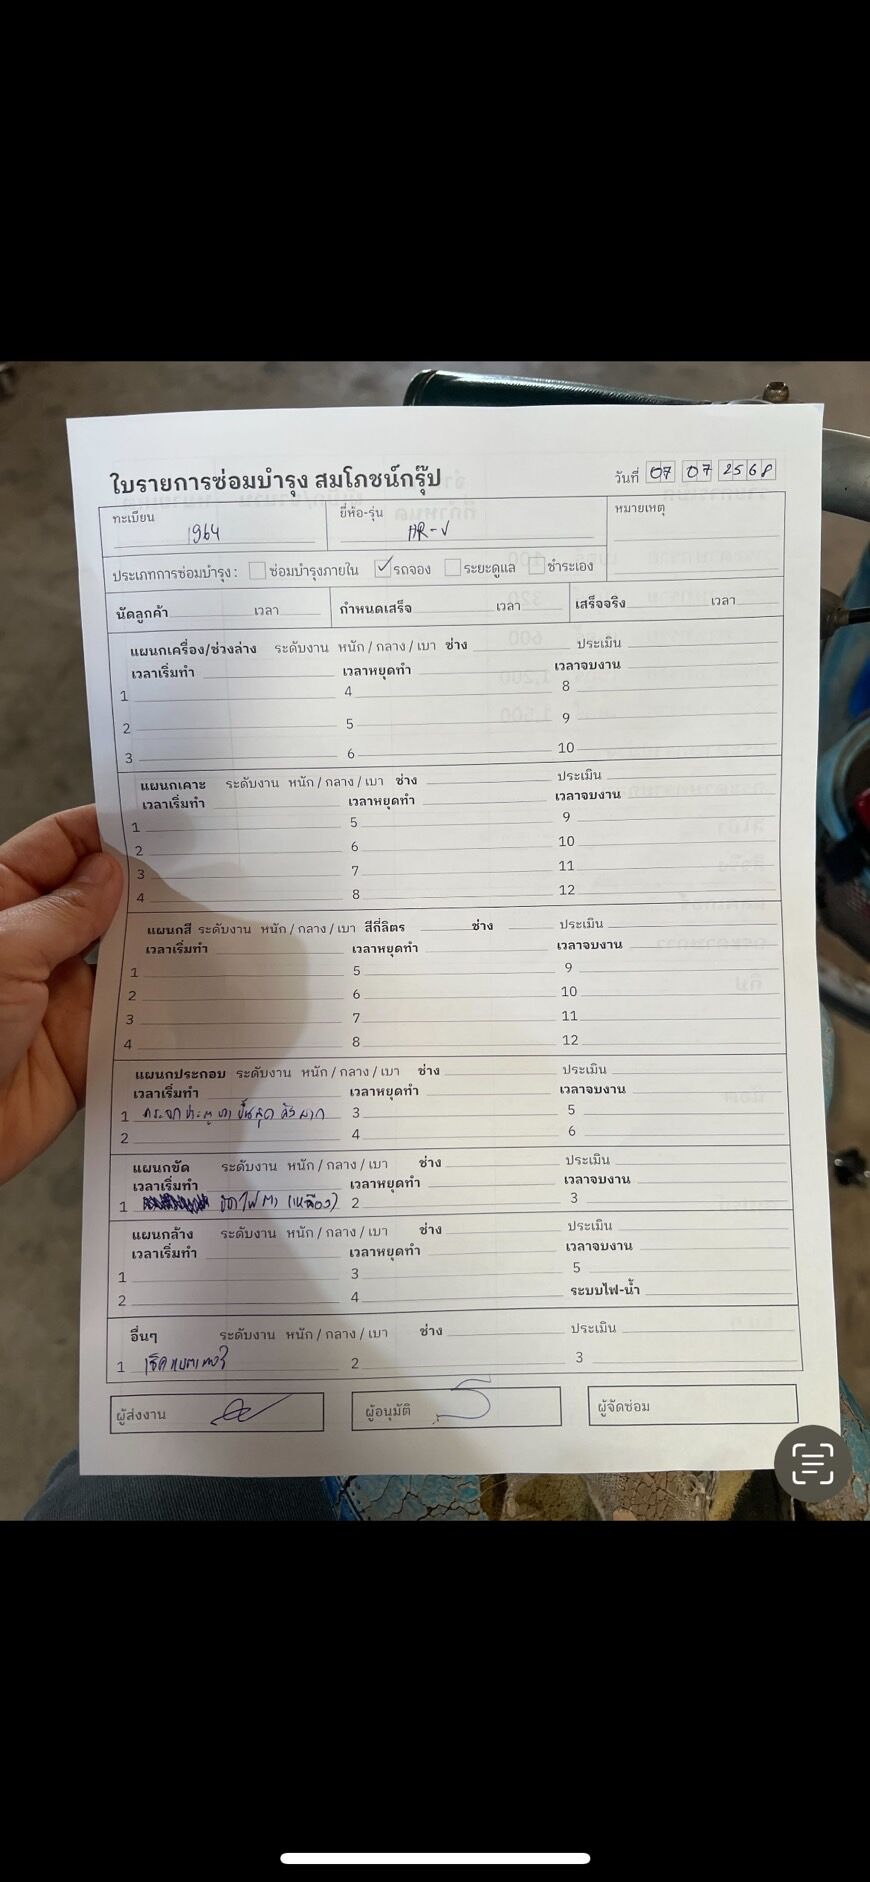 ใบรายการซ่อมบำรุง สมโภชน์กรุ๊ป
วันที่ 07 07 2568
ทะเบียน 1964 ยี่ห้อ-รุ่น HR-V หมายเหตุ
ประเภทการซ่อมบำรุง : ซ่อมบำรุงภายใน ✓ รถจอง ระยะดูแล ชำระเอง
นัดลูกค้า เวลา กำหนดเสร็จ เวลา เสร็จจริง เวลา
แผนกเครื่อง/ช่วงล่าง ระดับงาน หนัก / กลาง / เบา ช่าง ประเมิน
เวลาเริ่มทำ เวลาหยุดทำ เวลาจบงาน
1 4 8
2 5 9
3 6 10
แผนกเคาะ ระดับงาน หนัก / กลาง / เบา ช่าง ประเมิน
เวลาเริ่มทำ เวลาหยุดทำ เวลาจบงาน
1 5 9
2 6 10
3 7 11
4 8 12
แผนกสี ระดับงาน หนัก / กลาง / เบา สีกี่ลิตร ช่าง ประเมิน
เวลาเริ่มทำ เวลาหยุดทำ เวลาจบงาน
1 5 9
2 6 10
3 7 11
4 8 12
แผนกประกอบ ระดับงาน หนัก / กลาง / เบา ช่าง ประเมิน
เวลาเริ่มทำ เวลาหยุดทำ เวลาจบงาน
1 กระจกประตู 3 5
2 4 6
แผนกขัด ระดับงาน หนัก / กลาง / เบา ช่าง ประเมิน
เวลาเริ่มทำ เวลาหยุดทำ เวลาจบงาน
1 ขัดไฟตา (เหลือง) 2 3
แผนกล้าง ระดับงาน หนัก / กลาง / เบา ช่าง ประเมิน
เวลาเริ่มทำ เวลาหยุดทำ เวลาจบงาน
1 3 5
2 4 ระบบไฟ-น้ำ
อื่นๆ ระดับงาน หนัก / กลาง / เบา ช่าง ประเมิน
1 เช็คแบตเตอรี่ 2 3
ผู้ส่งงาน ผู้อนุมัติ ผู้จัดซ่อม